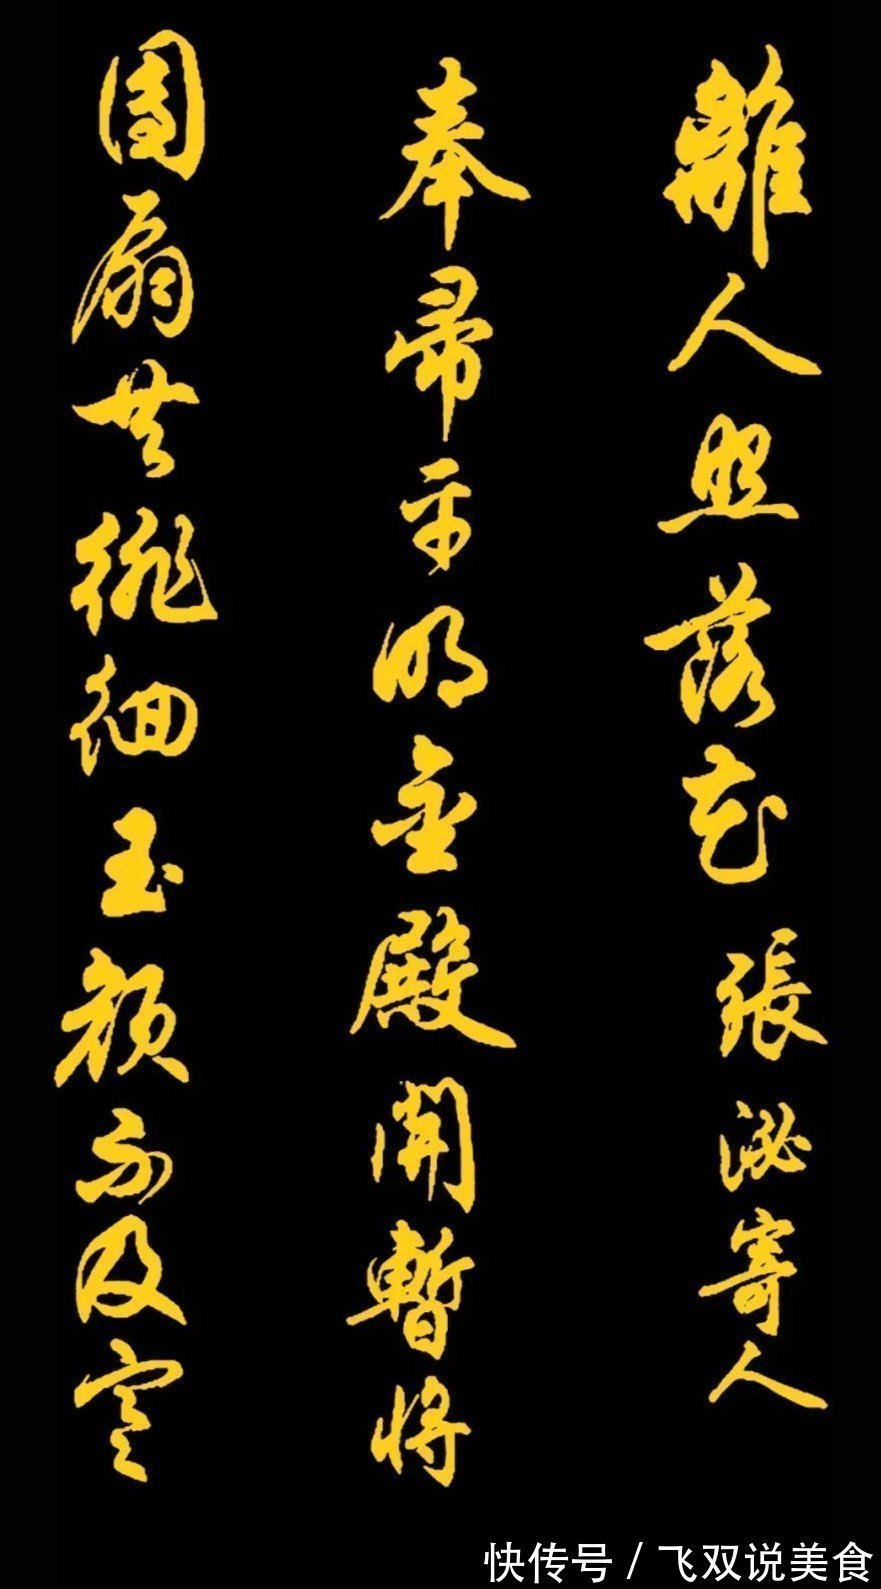 離人照落花 張泌寄人
奉帚平明金殿開暫將
團扇共徘徊玉顏不及寒
快传号 / 飞双说美食